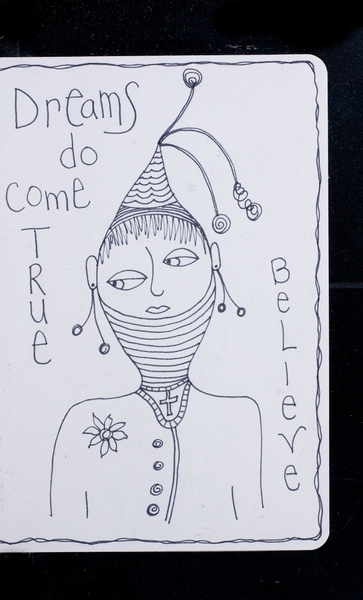 Dreams
do
come
TRue
BeLieve